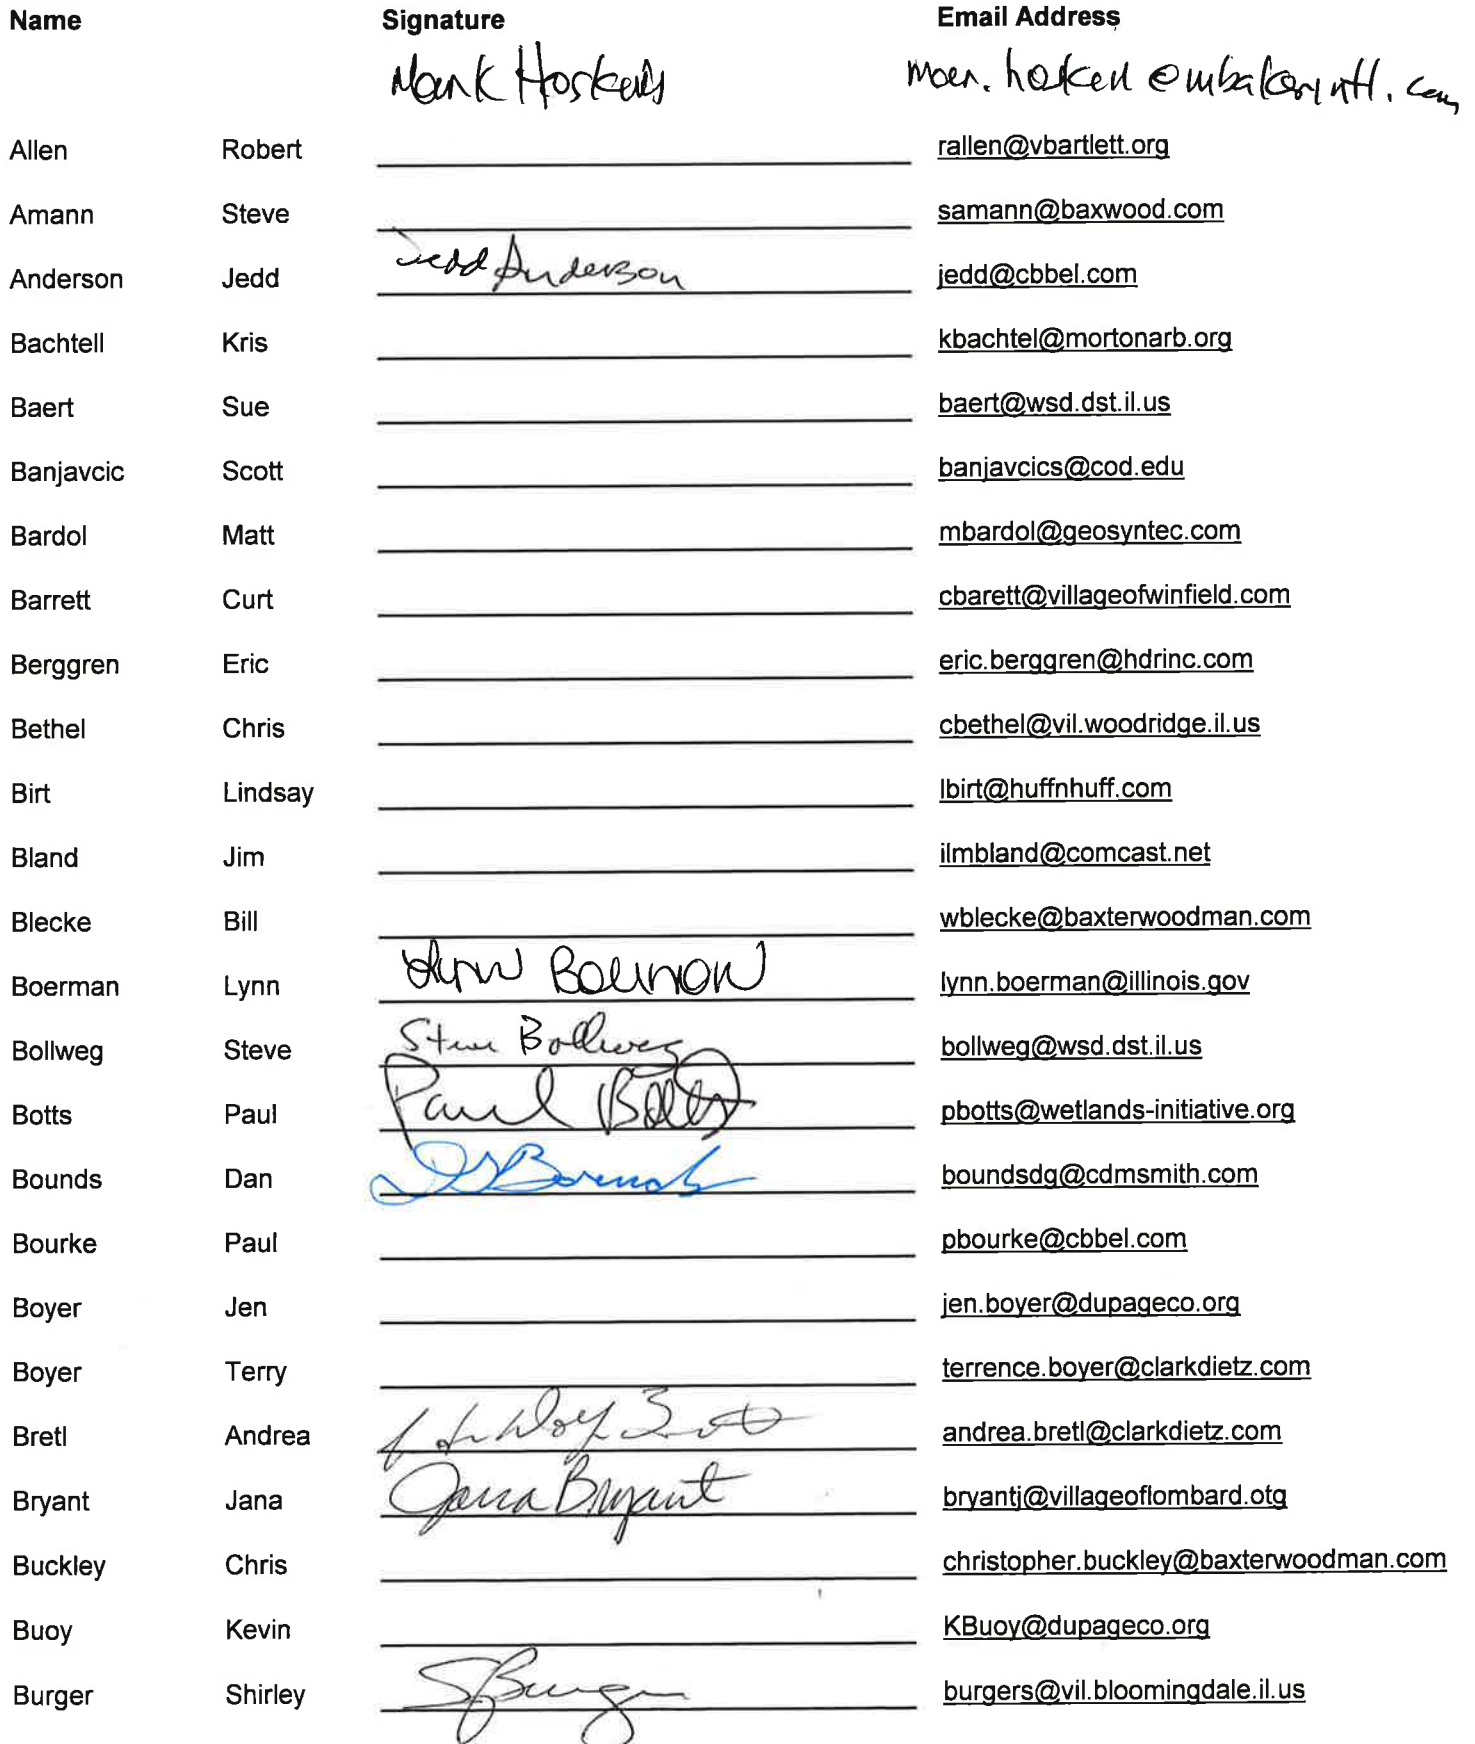 Name Signature Email Address
Mark Hoskens
Allen Robert rallen@vbartlett.org
Amann Steve samann@baxwood.com
Anderson Jedd Jedd Anderson jedd@cbbel.com
Bachtell Kris kbachtel@mortonarb.org
Baert Sue baert@wsd.dst.il.us
Banjavcic Scott banjavcics@cod.edu
Bardol Matt mbardol@geosyntec.com
Barrett Curt cbarett@villageofwinfield.com
Berggren Eric eric.berggren@hdrinc.com
Bethel Chris cbethel@vil.woodridge.il.us
Birt Lindsay lbirt@huffnhuff.com
Bland Jim ilmbland@comcast.net
Blecke Bill wblecke@baxterwoodman.com
Boerman Lynn Lynn Boerman lynn.boerman@illinois.gov
Bollweg Steve Steve Bollweg bollweg@wsd.dst.il.us
Botts Paul Paul Botts pbotts@wetlands-initiative.org
Bounds Dan DG Bounds boundsdg@cdmsmith.com
Bourke Paul pbourke@cbbel.com
Boyer Jen jen.boyer@dupageco.org
Boyer Terry terrence.boyer@clarkdietz.com
Bretl Andrea andrea.bretl@clarkdietz.com
Bryant Jana Jana Bryant bryantj@villageoflombard.otg
Buckley Chris christopher.buckley@baxterwoodman.com
Buoy Kevin KBuoy@dupageco.org
Burger Shirley SBurger burgers@vil.bloomingdale.il.us